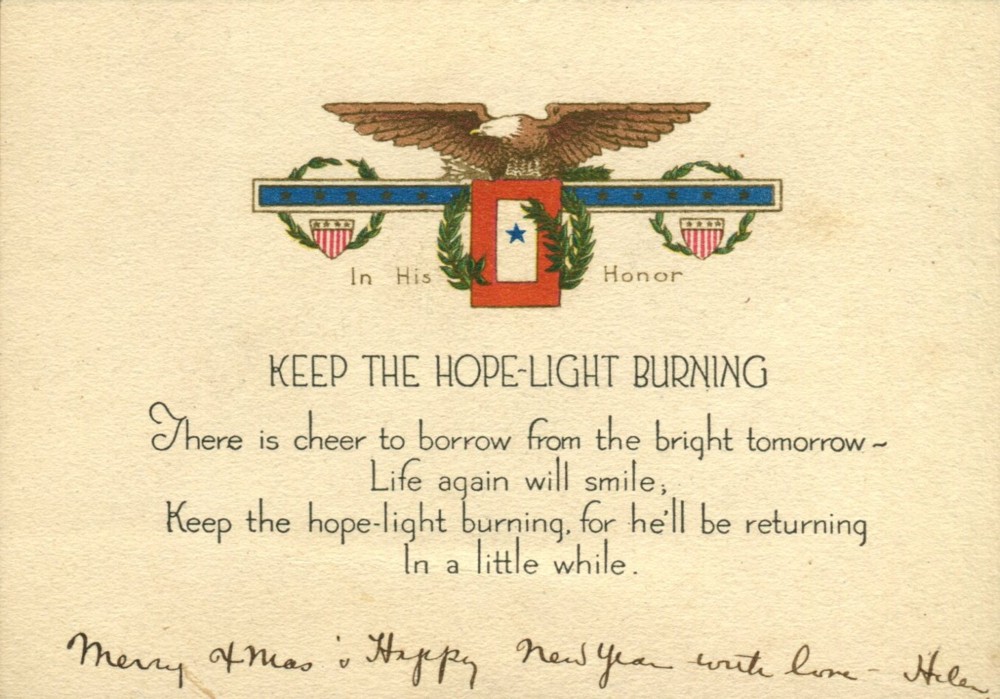 In His Honor
KEEP THE HOPE-LIGHT BURNING
There is cheer to borrow from the bright tomorrow~
Life again will smile;
Keep the hope-light burning, for he'll be returning
In a little while.
Merry Xmas & Happy New Year with love - Helen